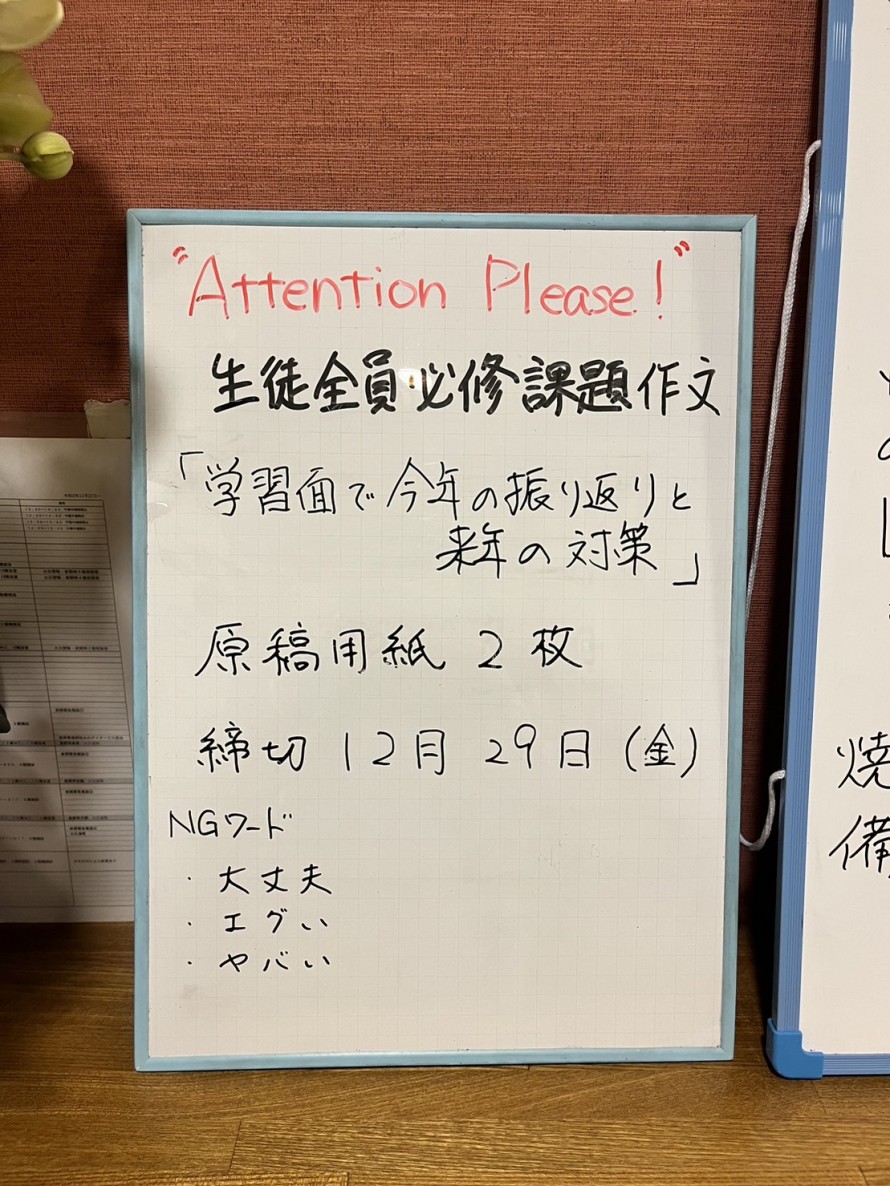 "Attention Please!"
生徒全員必修課題作文
「学習面で今年の振り返りと
来年の対策」
原稿用紙 2枚
締切 12月 29日(金)
NGワード
・大丈夫
・エグい
・ヤバい
焼
備